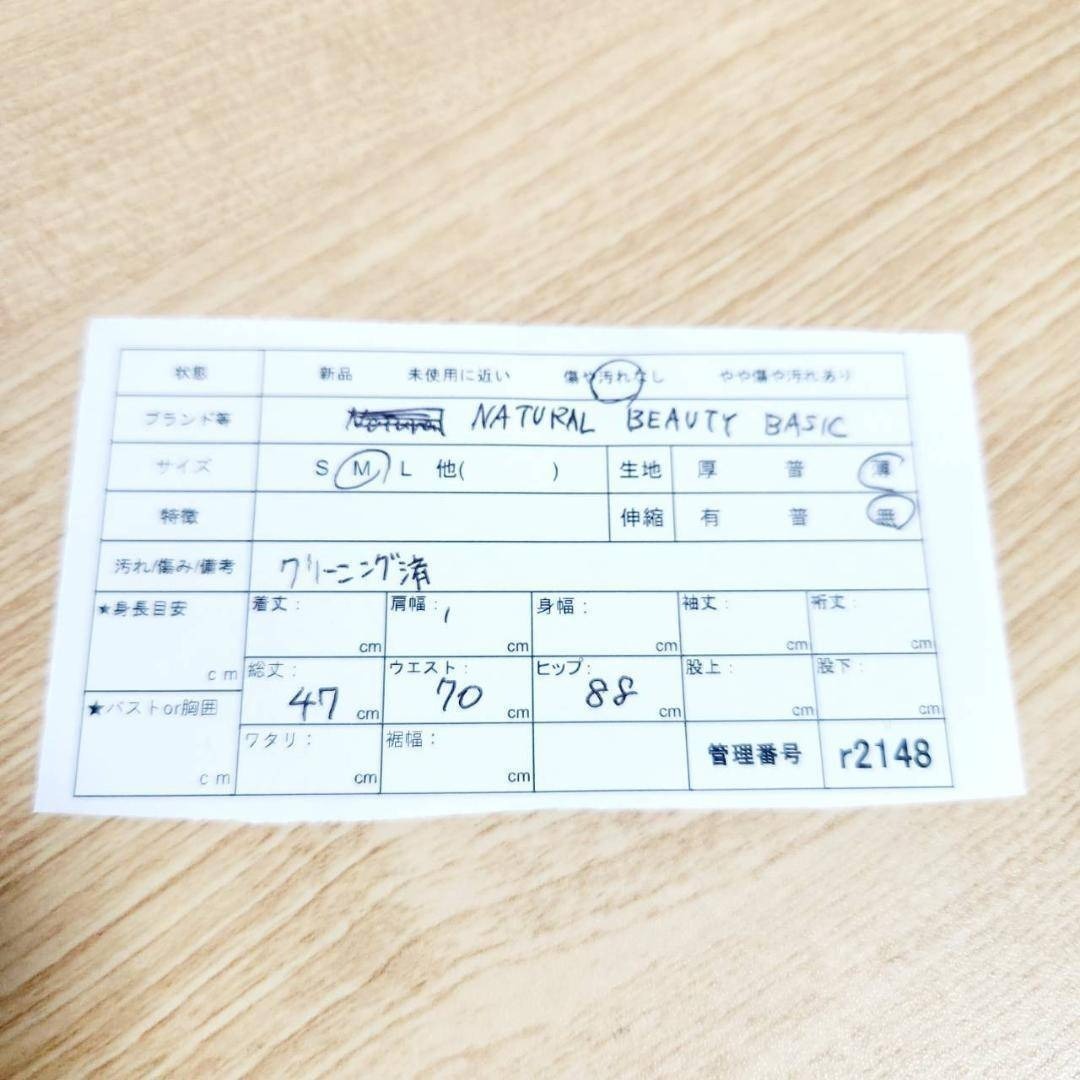 状態 新品 未使用に近い 傷や汚れなし やや傷や汚れあり
ブランド等 NATURAL BEAUTY BASIC
サイズ S M L 他( ) 生地 厚 普 薄
特徴 伸縮 有 普 無
汚れ/傷み/備考 クリーニング済
★身長目安 cm 着丈: cm 肩幅: cm 身幅: cm 袖丈: cm 裄丈: cm
総丈: 47 cm ウエスト: 70 cm ヒップ: 88 cm 股上: cm 股下: cm
★バストor胸囲 cm ワタリ: cm 裾幅: cm 管理番号 r2148